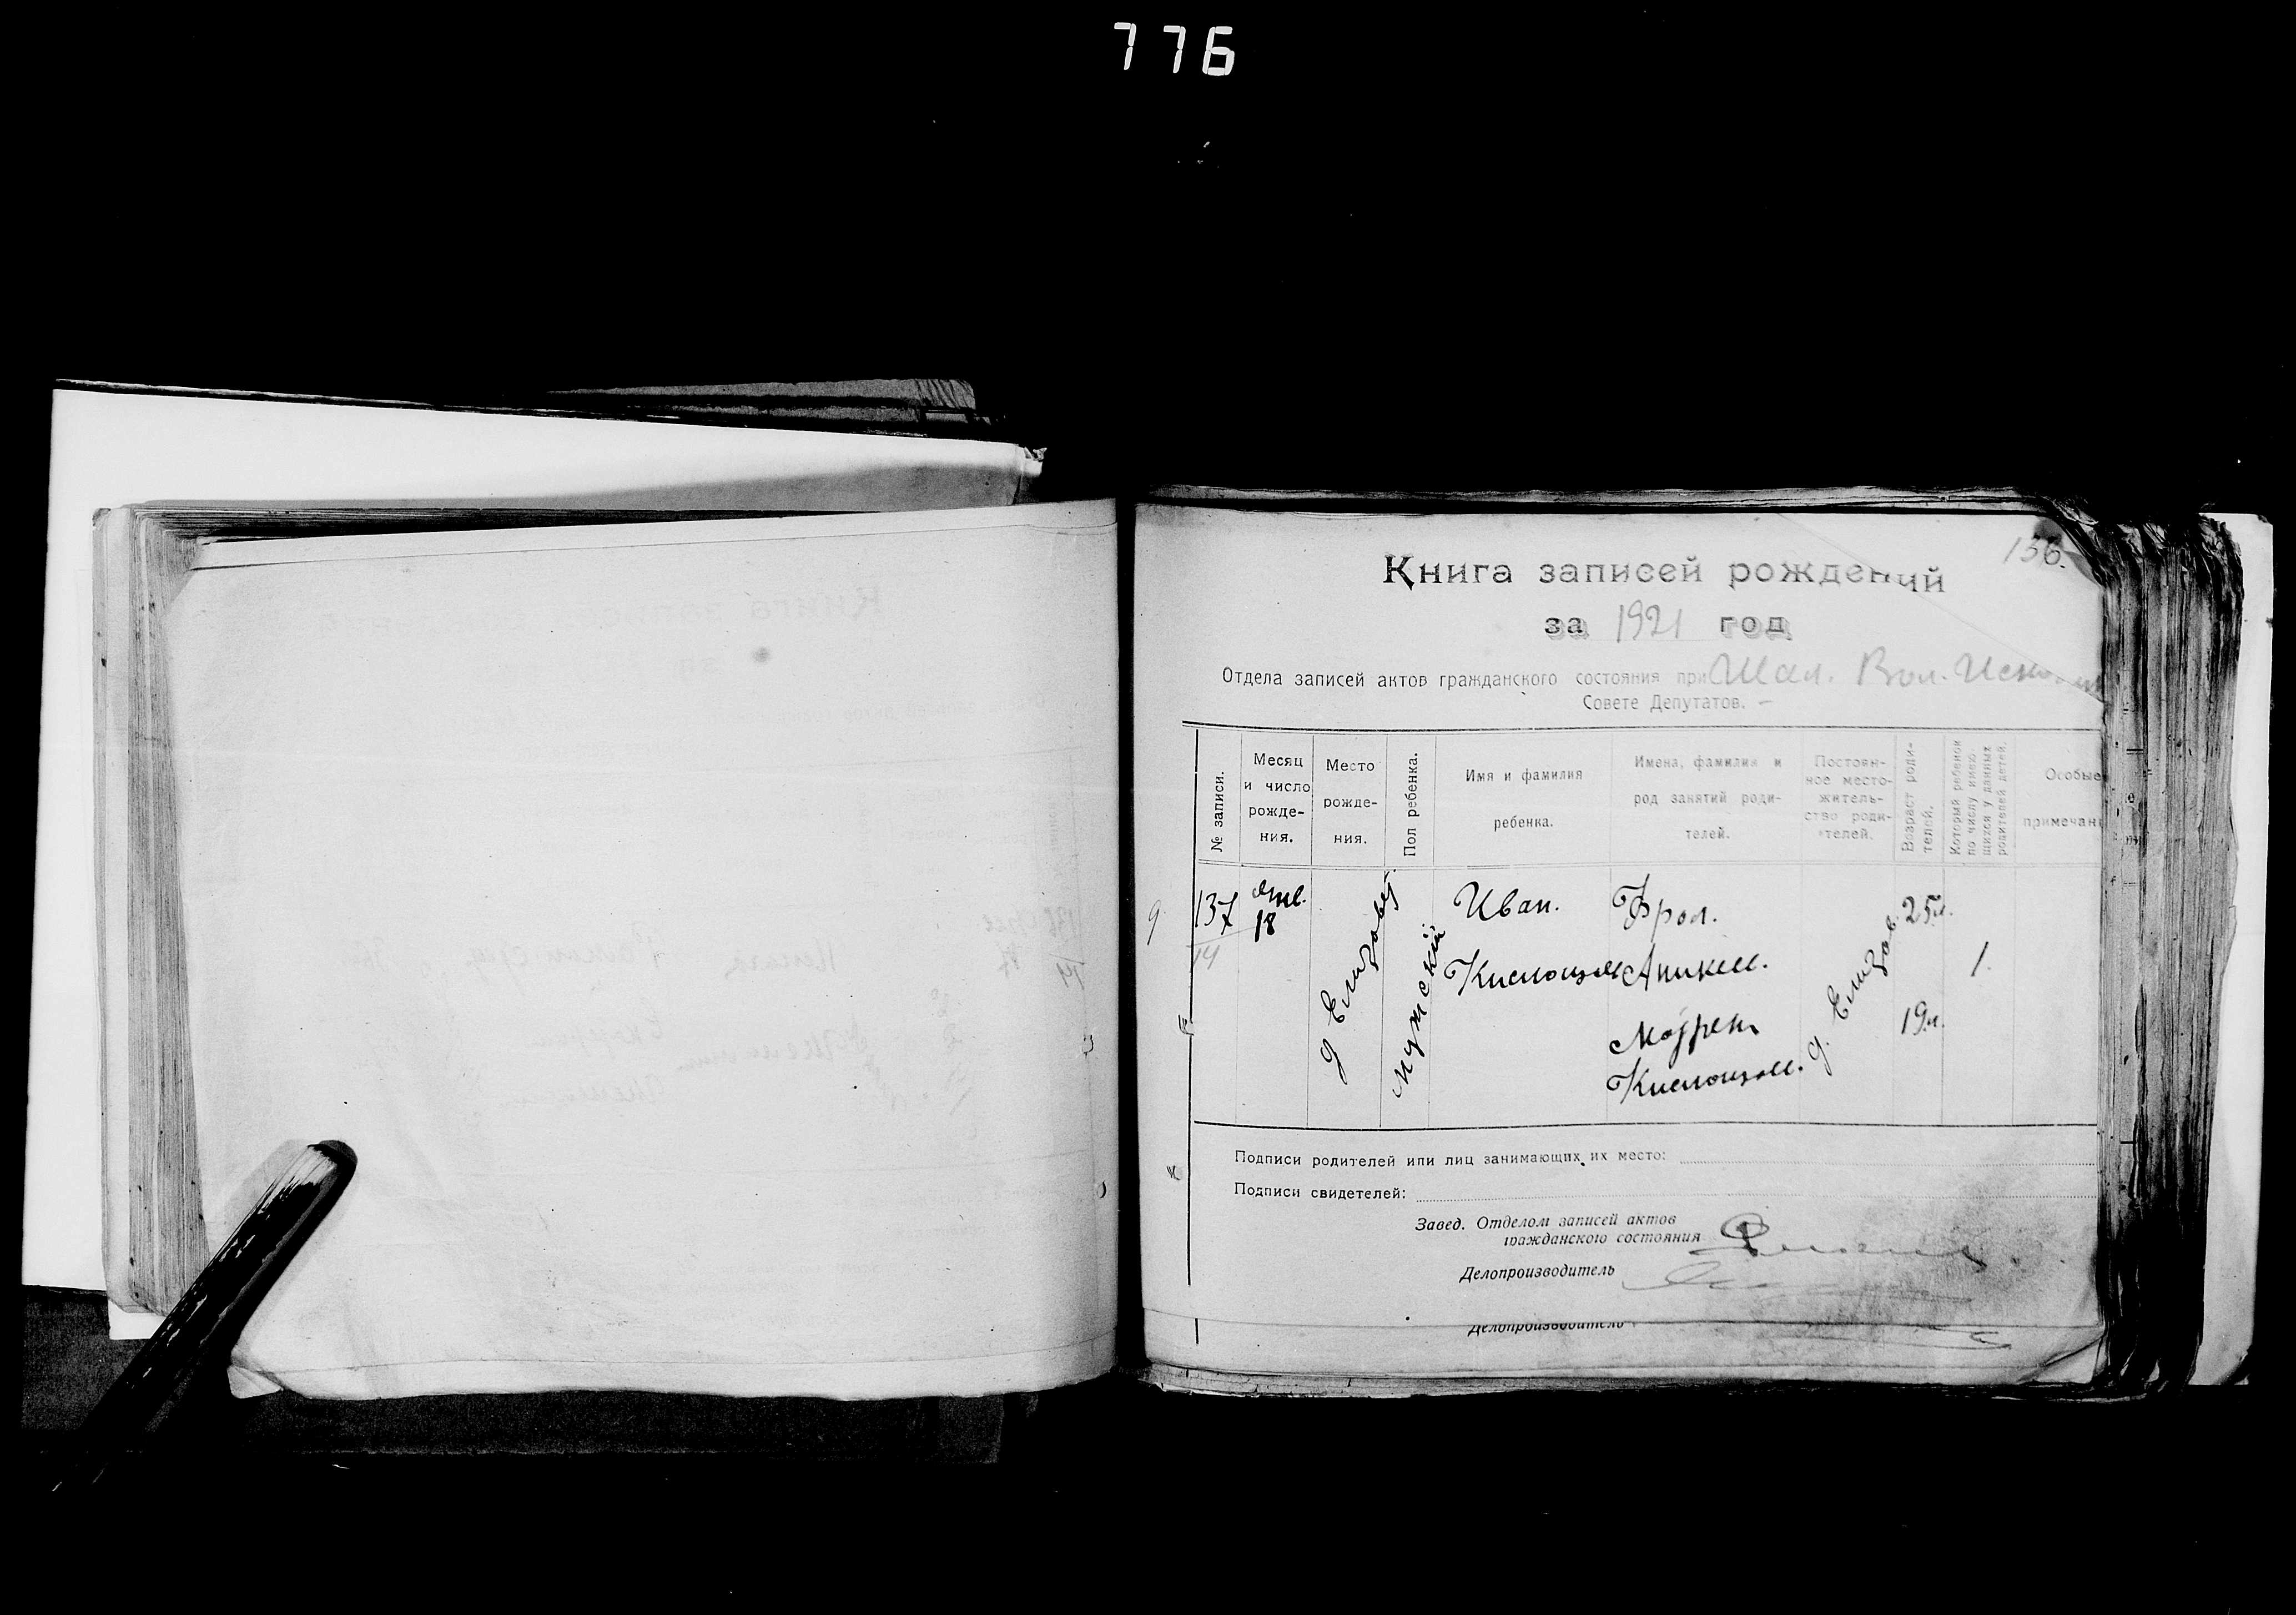 776
136.
Книга записей рождений
за 1921 год
Отдела записей актов гражданского состояния при Шал. Вол.
Совете Депутатов. —
№ записи.
Месяц и число рожде- ния.
Место рожде- ния.
Пол ребенка.
Имя и фамилия ребенка.
Имена, фамилия и род занятий роди- телей.
Постоян- ное место- житель- ство роди- телей.
Возраст роди- телей.
Который ребенок по числу имею- щихся у данных родителей детей.
Особые примечан
9
137
14
Янв.
18
д Елизавет
Мужский
Иван.
Фрол.
Аникее.
д. Елизав.
25 л.
19 л.
1.
Подписи родителей или лиц занимающих их место:
Подписи свидетелей:
Завед. Отделом записей актов
гражданского состояния
Делопроизводитель
Делопроизводитель